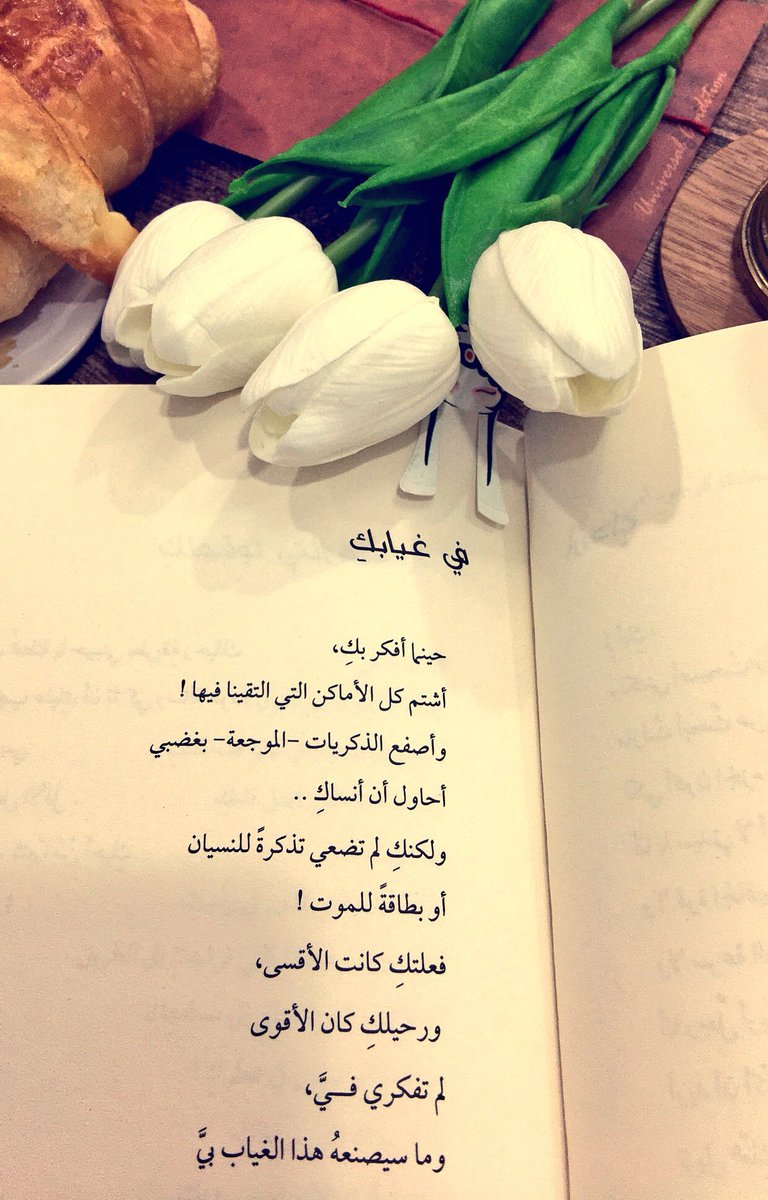 Universal Edition
في غيابكِ
حينما أفكر بكِ،
أشتم كل الأماكن التي التقينا فيها !
وأصفع الذكريات –الموجعة– بغضبي
أحاول أن أنساكِ ..
ولكنكِ لم تضعي تذكرةً للنسيان
أو بطاقةً للموت !
فعلتكِ كانت الأقسى،
ورحيلكِ كان الأقوى
لم تفكري فـــيَّ،
وما سيصنعهُ هذا الغياب بيَّ